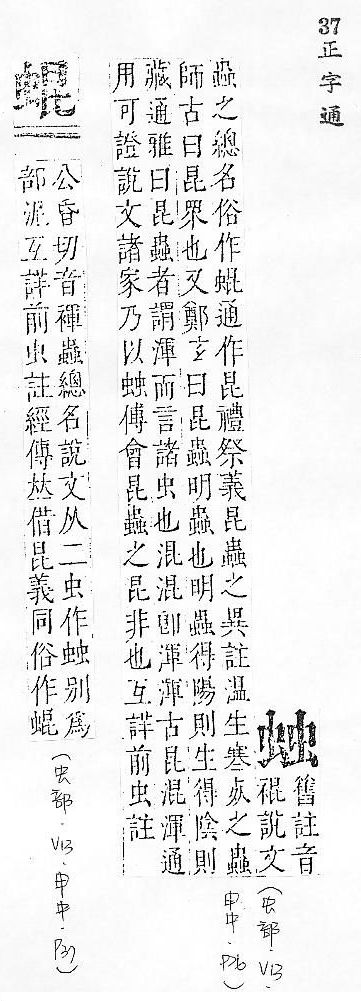 37 正字通
䖵 舊註音
裩說文
蟲之總名俗作蜫通作昆禮祭義昆蟲之異註溫生寒死之蟲
師古曰昆眾也又鄭玄曰昆蟲明蟲也明蟲得陽則生得陰則
藏通雅曰昆蟲者謂渾而言諸虫也混混卽渾渾古昆混渾通
用可證說文諸家乃以䖵傅會昆蟲之昆非也互詳前虫註
(虫部·V13·申中·P36)
蜫
公昏切音褌蟲總名說文从二虫作䖵别爲
部泥互詳前虫註經傳夶借昆義同俗作蜫
(虫部·V13·申中·P37)